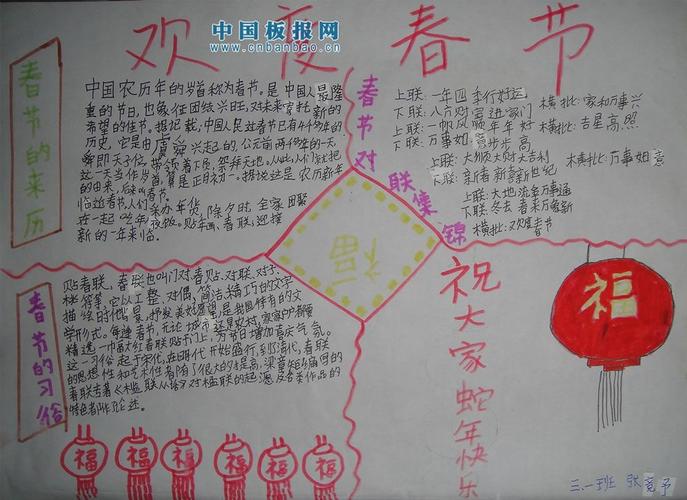 欢度春节
中国板报网
www.cnbanbao.cn
春节的来历
中国农历年的岁首称为春节。是中国人最隆
重的节日,也象征团结兴旺,对未来寄托新的
希望的佳节。据记载,中国人民过春节已有4千多年的
历史,它是由虞舜兴起的。公元前两千多年的一天,
舜即天子位,带领着下属,祭拜天地。从此,人们就把
这一天当作岁首,算是正月初一。据说这是农历新年
的由来,后来叫春节。
临近春节,人们采办年货,除夕时,全家团聚
在一起吃年夜饭。贴年画、春联,迎接
新的一年来临。
春节对联集锦
上联:一年四季行好运
下联:八方财宝进家门 横批:家和万事兴
上联:一帆风顺年年好
下联:万事如意步步高 横批:吉星高照
上联:大顺大财大吉利
下联:新春新喜新世纪 横批:万事如意
上联:大地流彩万事通
下联:冬去春来万象新
横批:欢度春节
福
春节的习俗
贴春联,春联也叫门对、春贴、对联、对子、
描绘时代背景,抒发美好愿望,是我国特有的文
学形式。每逢春节,无论城市还是农村,家家户户都要
精选一幅大红春联贴于门上,为节日增加喜庆气氛。
这一习俗起于宋代,在明代开始盛行,到了清代,春联
的思想性和艺术性都有了很大的提高,
特色都作了论述。
祝大家蛇年快乐
福
福
福
福
福
福
福
三.一班